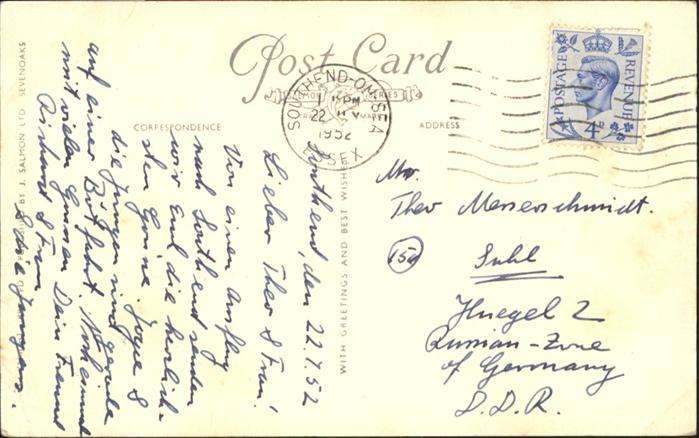 Post Card
CORRESPONDENCE
ADDRESS
SOUTHEND-ON-SEA
PM
22
1952
ESSEX
POSTAGE
REVENUE
4D
Southend, den 22.7.52
Lieber Theo & Frau!
Von einen Ausflug
nach Southend senden
wir Euch die herzlich-
sten Grüsse. Joyce &
die Jungen sind gerade
auf einer Bootfahrt. Nocheinmal
mit vielen Grüssen Dein Freund
Richard & Frau
& die Jungens.
WITH GREETINGS AND BEST WISHES
BY J. SALMON LTD SEVENOAKS
Mr.
Theo Messerschmidt.
15a
Suhl
Huegel 2
Russian-Zone
of Germany
D.D.R.